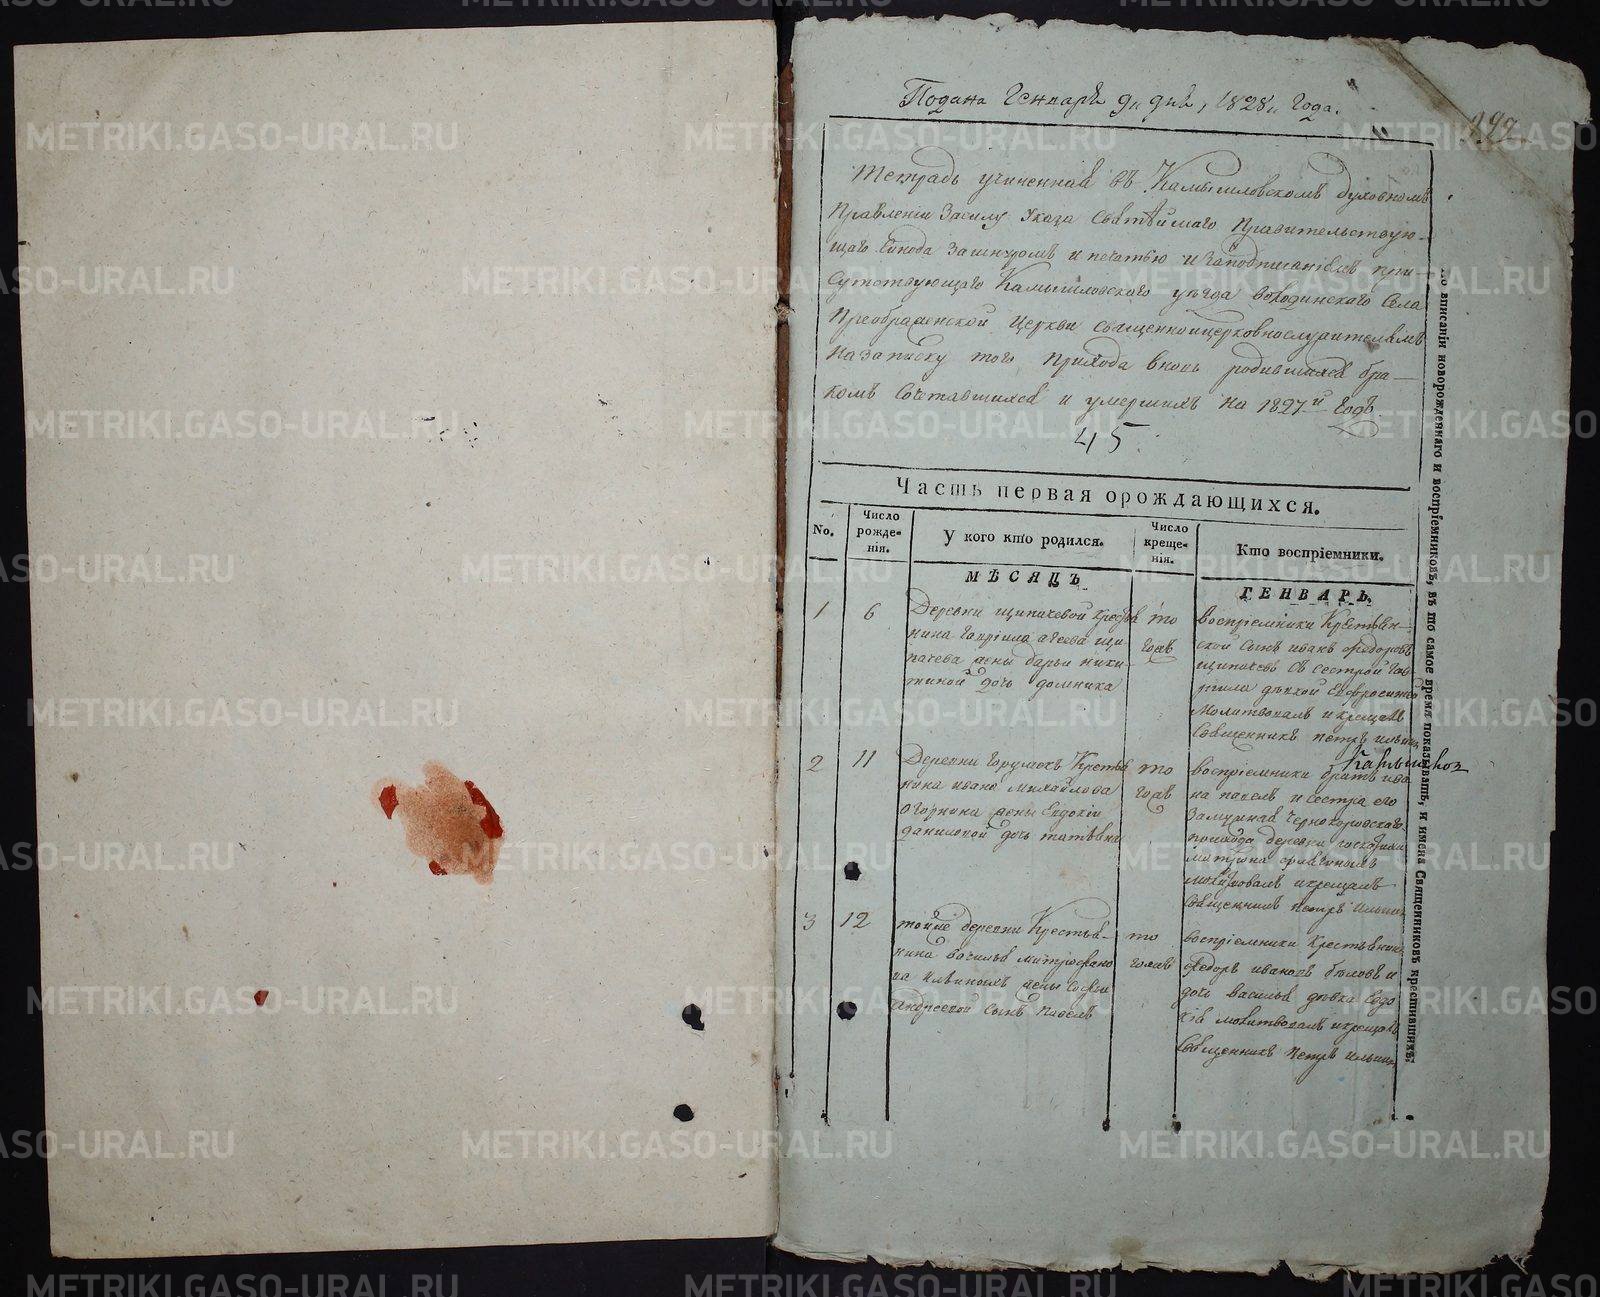 Подана Генваря 9 дня, 1828 года.
Тетрадь учиненная въ Камышловскомъ духовномъ
Правленіи засилу Указа Святѣйшаго Правительствую-
щаго Сѵнода зашнуромъ и печатью и заподписаніемъ при-
сутствующаго Камышловскаго уѣзда Володинскаго Села
Преображенской Церкви священноицерковнослужителямъ
на записку того Прихода вновь родившихся бра-
комъ Сочетавшихся и умершихъ на 1827й Годъ
45
Часть первая орождающихся.
No.
Число рожде- нія.
У кого кто родился.
Число креще- нія.
Кто воспріемники.
МѢСЯЦЪ
ГЕНВАРЬ
1
6
Деревни щипачевой Крестья
нина Гавріила агеева щи
пачева жены дарьи ники-
тиной дочь домника
то
гожъ
воспріемники Крестьян-
ской сынъ иванъ федоровъ
щипачевъ съ сестрой гав
рила дѣвкой Евфросиніей
Молитвовалъ икрещалъ
Священникъ петръ ильинъ
2
11
Деревни Крестья
нина ивана михайлова
жены Евдокіи
даниловой дочь татьяна
то
гожъ
воспріемники братъ ива
на павелъ и сестра его
замужняя
прихода деревни
матрона
молитвовалъ икрещалъ
Священникъ петръ ильинъ
3
12
тойже деревни Крестья-
нина василья митрофано
ва жены Софьи
андреевой сынъ павелъ
то
гожъ
воспріемники Крестьянинъ
федоръ ивановъ бѣловъ и
дочь василья дѣвка Евдо
кія молитвовалъ икрещалъ
Священникъ петръ ильинъ
по вписаніи новорожденнаго и воспріемниковъ, въ то самое время показывать, и имена Священниковъ крестившихъ.
METRIKI.GASO-URAL.RU